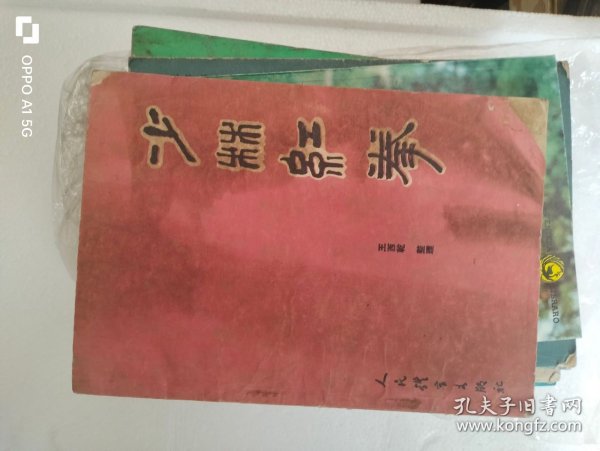 少林紅拳
王西乾 整理
人民体育出版社
OPPO A1 5G
孔夫子旧书网
www.kongfz.com